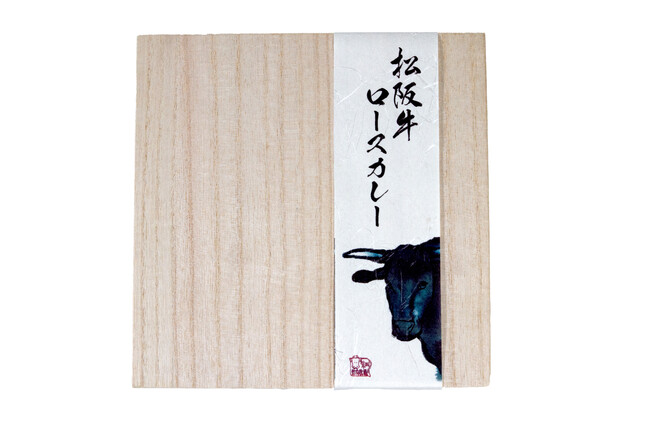 松阪牛
ロースカレー